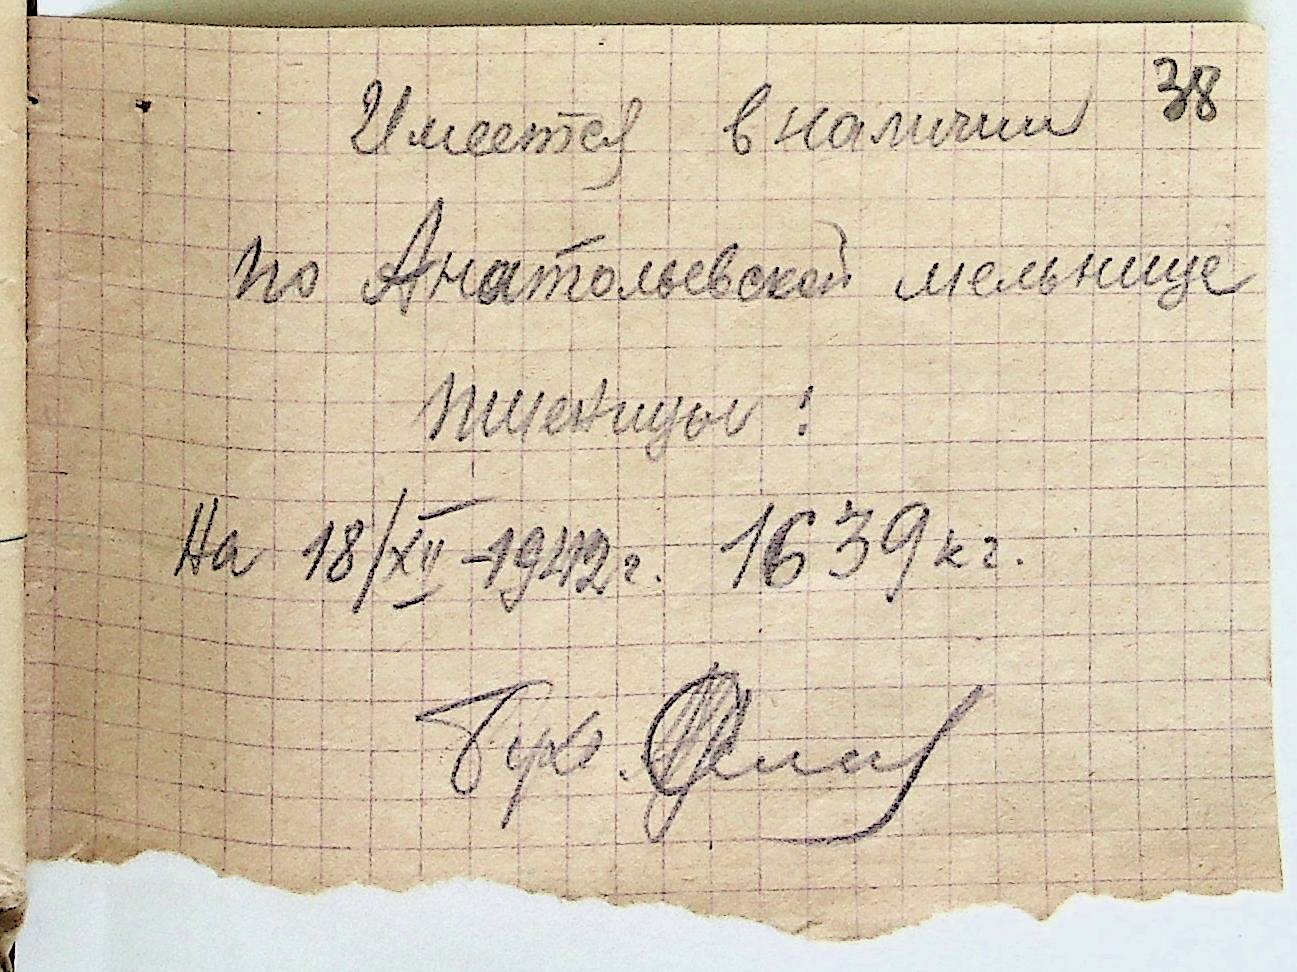 38
Имеется в наличии
по Анатольевской мельнице
пшеницы:
На 18/XII-1942 г. 1639 кг.
Бух.